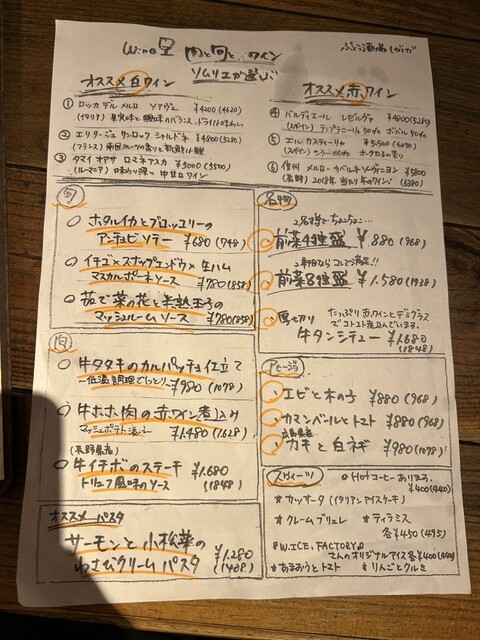 Wine 肉と旬と、ワイン
ソムリエが選ぶ
オススメ白ワイン
① ロッカ デル メルロ ソアヴェ ¥4200 (4620)
(イタリア) 果実味と酸味のバランス、ドライな味わい
② エリタージュ サンロック シャルドネ ¥4800 (5280)
(フランス) 南国フルーツの香りと新鮮な酸
③ タマイオアサ ロマネアスカ ¥5000 (5500)
(ルーマニア) 味わい深い 中甘口ワイン
オススメ赤ワイン
④ バルディエール レゼルヴァ ¥4800 (5280)
(スペイン) テンプラニーリョ50% ボバル50%
⑤ エル カスティーヤ ¥5,500 (6050)
⑥ 信州 メルロー・カベルネソーヴィニヨン ¥5800
(長野) 2018年 当たり年のワイン (6380)
旬
○ ホタルイカとブロッコリーの
アンチョビソテー ¥680 (748)
○ イチゴ×スナップエンドウ×生ハム
マスカルポーネソース ¥780 (858)
○ 茹で菜の花と半熟玉子の
マッシュルームソース ¥780 (858)
肉
○ 牛タタキのカルパッチョ仕立て
〜低温調理でしっとり〜 ¥980 (1078)
○ 牛ホホ肉の赤ワイン煮込み
マッシュポテト添え ¥1.480 (1.628)
(長野県産)
○ 牛イチボのステーキ ¥1.680
トリュフ風味のソース (1848)
オススメパスタ
サーモンと小松菜の
わさびクリームパスタ ¥1.280
(1408)
名物
2名様でちょこちょこ…
前菜4種盛 ¥880 (968)
前菜8種盛 ¥1.580 (1738)
厚切り たっぷり赤ワインとデミグラス
でコトコト煮込んでいます。
牛タンシチュー ¥1.680
(1848)
アヒージョ
エビと木の子 ¥880 (968)
カマンベールとトマト ¥880 (968)
広島県産
カキと白ネギ ¥980 (1078)
スウィーツ
○ Hotコーヒーあります。
¥400 (440)
★ カッサータ (イタリアンアイスケーキ)
★ クレームブリュレ ★ ティラミス
各¥450 (495)
『W.ICE.FACTORY』
さんのオリジナルアイス 各¥400 (440)
★ あまおうとトマト ★ りんごとクルミ